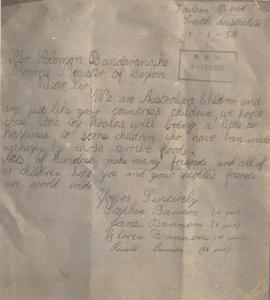 Tailem Bend
South Australia
1-1-58
Mr. Solomon Bandaranaike
Prime Minister of Ceylon
Dear Sir
We are Australian Children and
are just like your countries children we hope
these little toy Koalas will bring a little
happiness to some children who have been made
unhappy by those terrible floods.
Acts of kindness make many friends and all of
us children hope you and your people's friends
are world wide
Yours Sincerely
Stephen Bannon
Jane Bannon
Bannon
Ronald Bannon